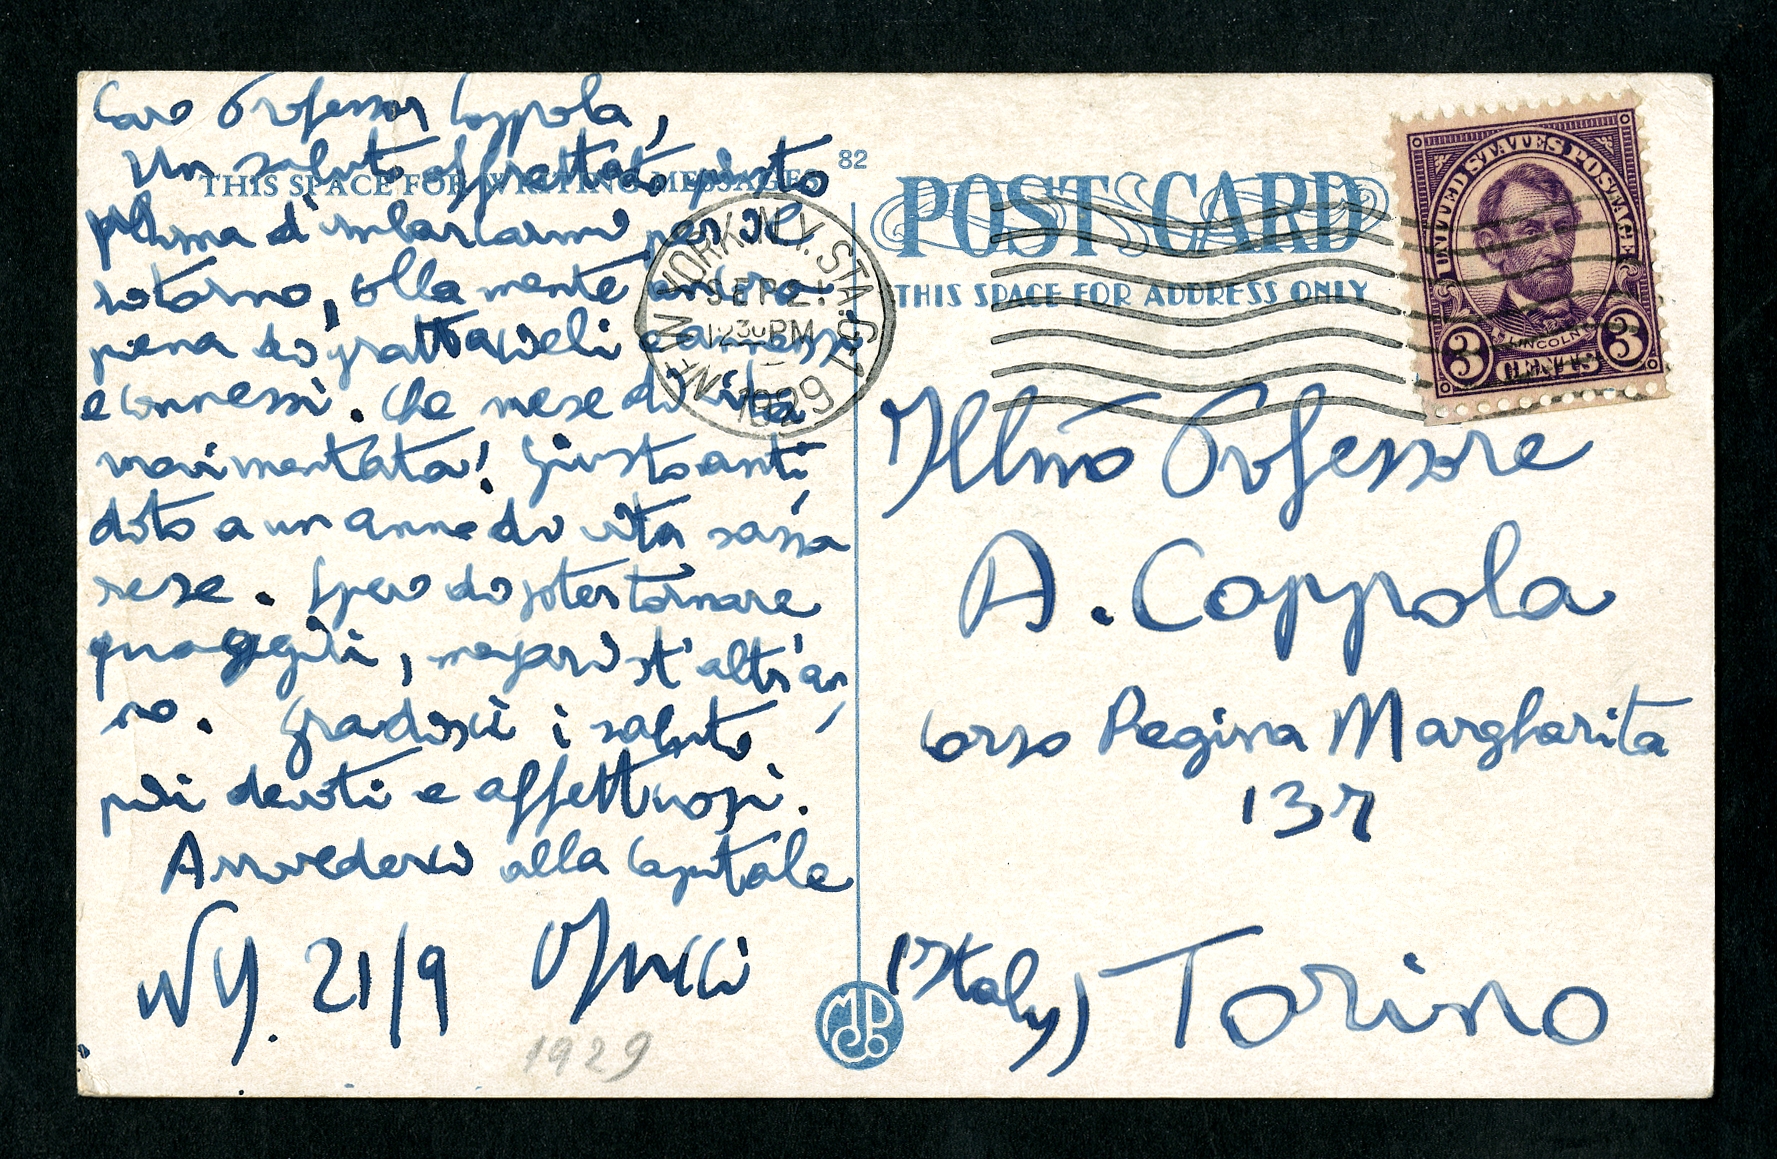 Caro Professor Coppola,
Un saluto affrettato
prima d'imbarcarmi per il
ritorno, colla mente ancora
piena di grattacieli e annessi
e connessi. Che mese di vita
movimentata! Giusto anti,
doto a un anno di vita sassa
rese. Spero di poter tornare
quaggiù, magari st'altr'an
no. Gradisci i saluti
più devoti e affettuosi.
Arrivederci alla Capitale
NY. 21/9
1929
THIS SPACE FOR WRITING MESSAGES
82
POST CARD
THIS SPACE FOR ADDRESS ONLY
NEW YORK, N.Y. STA.
SEP 21
12 30 PM
1929
UNITED STATES POSTAGE
LINCOLN
3 CENTS 3
Illmo Professore
A. Coppola
Corso Regina Margherita
137
(Italy) Torino